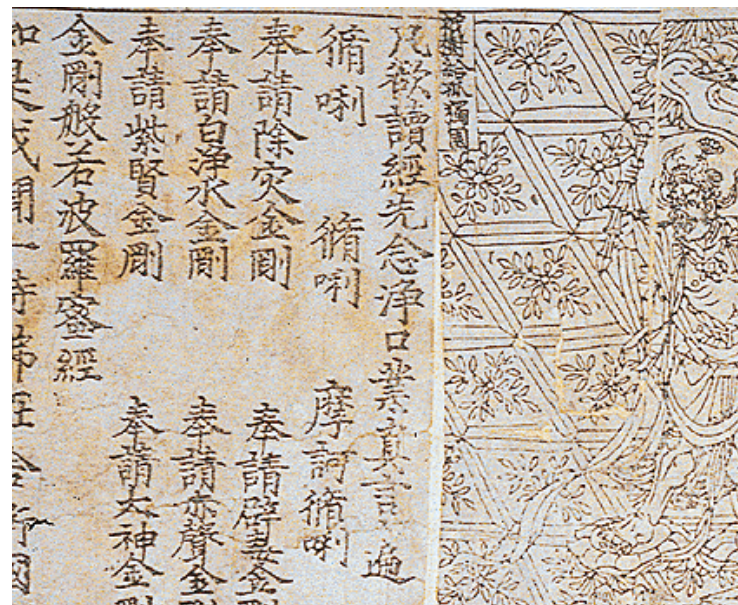 祇樹給孤獨園
凡欲讀經先念浄口業真言一遍
脩唎 脩唎 摩訶脩唎
奉請除灾金剛 奉請辟毒金剛
奉請白浄水金剛 奉請赤聲金剛
奉請紫賢金剛 奉請大神金剛
金剛般若波羅蜜經
如是我聞一時佛在舍衛國